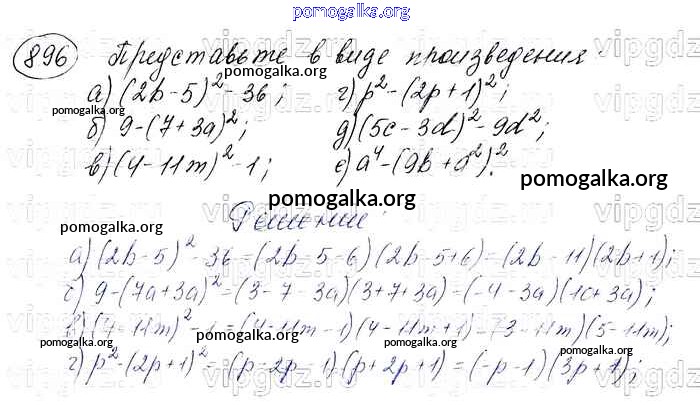 pomogalka.org
896 Представьте в виде произведения:
а) (2b-5)² - 36; г) p² - (2p+1)²;
pomogalka.org
б) 9-(7+3a)²; д) (5c-3d)² - 9d²;
pomogalka.org
в) (4-11m)² - 1; е) a⁴ - (9b+a²)².
pomogalka.org
pomogalka.org
Решение:
pomogalka.org
а) (2b-5)² - 36 = (2b-5-6)(2b-5+6) = (2b-11)(2b+1);
б) 9-(7a+3a)² = (3-7-3a)(3+7+3a) = (-4-3a)(10+3a);
в) (4-11m)² - 1 = (4-11m-1)(4-11m+1) = (3-11m)(5-11m);
pomogalka.org
г) p² - (2p+1)² = (p-2p-1)(p+2p+1) = (-p-1)(3p+1);
pomogalka.org